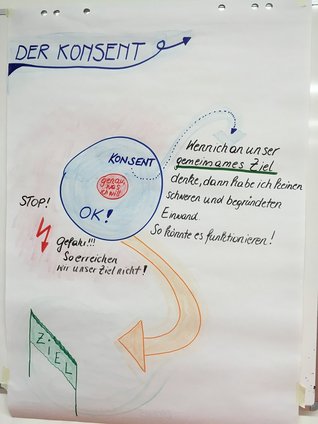 DER KONSENT
KONSENT
genau
was
ich will
OK!
Wenn ich an unser
gemeinsames Ziel
denke, dann habe ich keinen
schweren und begründeten
Einwand.
So könnte es funktionieren!
STOP!
Gefahr!!!
So erreichen
wir unser Ziel nicht!
ZIEL